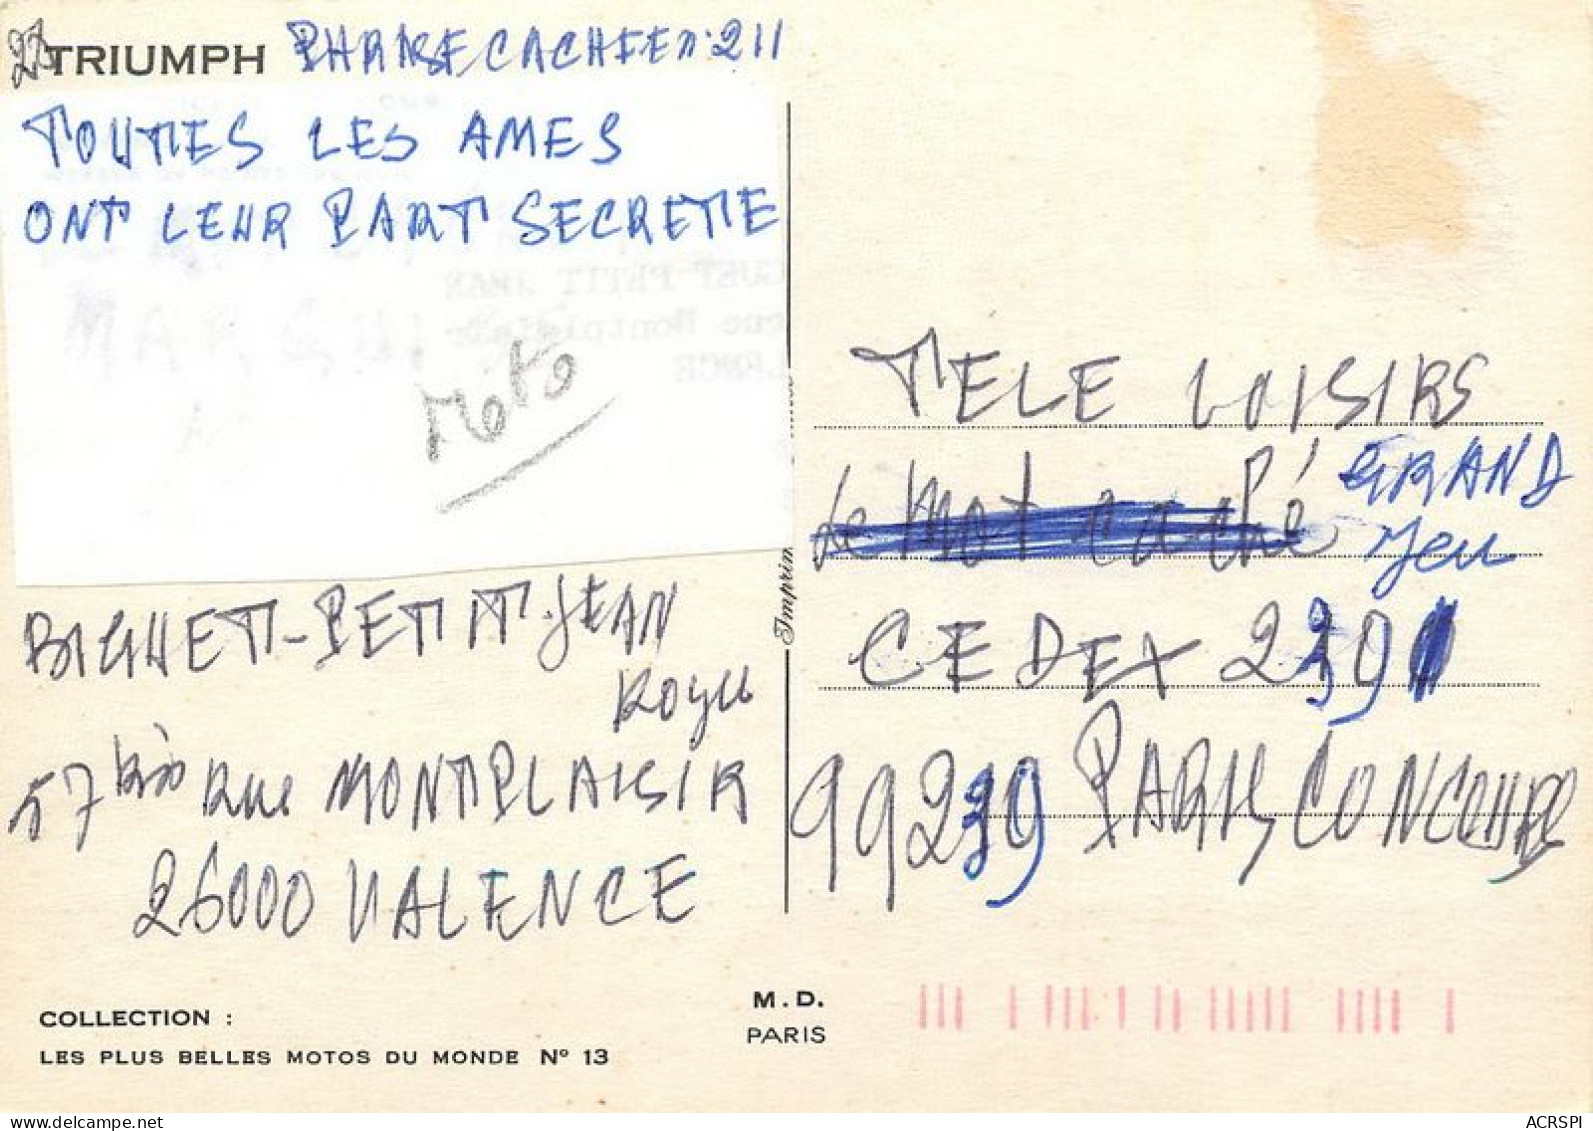 23
TRIUMPH PHRASE CACHEE n° 211
TOUTES LES AMES
ONT LEUR PART SECRETE
Moto
BIGUET-PETIT-JEAN
57 bis Rue MONTPLAISIR
26000 VALENCE
COLLECTION :
LES PLUS BELLES MOTOS DU MONDE N° 13
M. D.
PARIS
Imprim
TELE LOISIRS
Le Mot caché GRAND
Jeu
CEDEX 239
99239 PARIS CONCOURS
ACRSPI